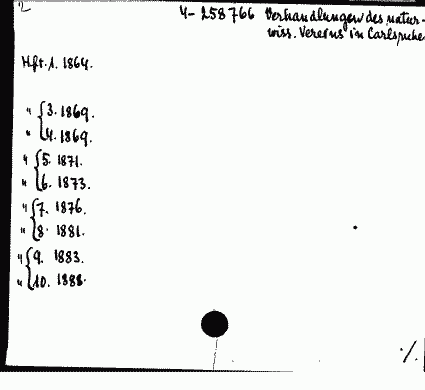 2
4-258766 Verhandlungen des natur-
wiss. Vereins in Carlsruhe
Hft. 1. 1864.
" 3. 1869.
" 4. 1869.
" 5. 1871.
" 6. 1873.
" 7. 1876.
" 8. 1881.
" 9. 1883.
" 10. 1888.
·/.